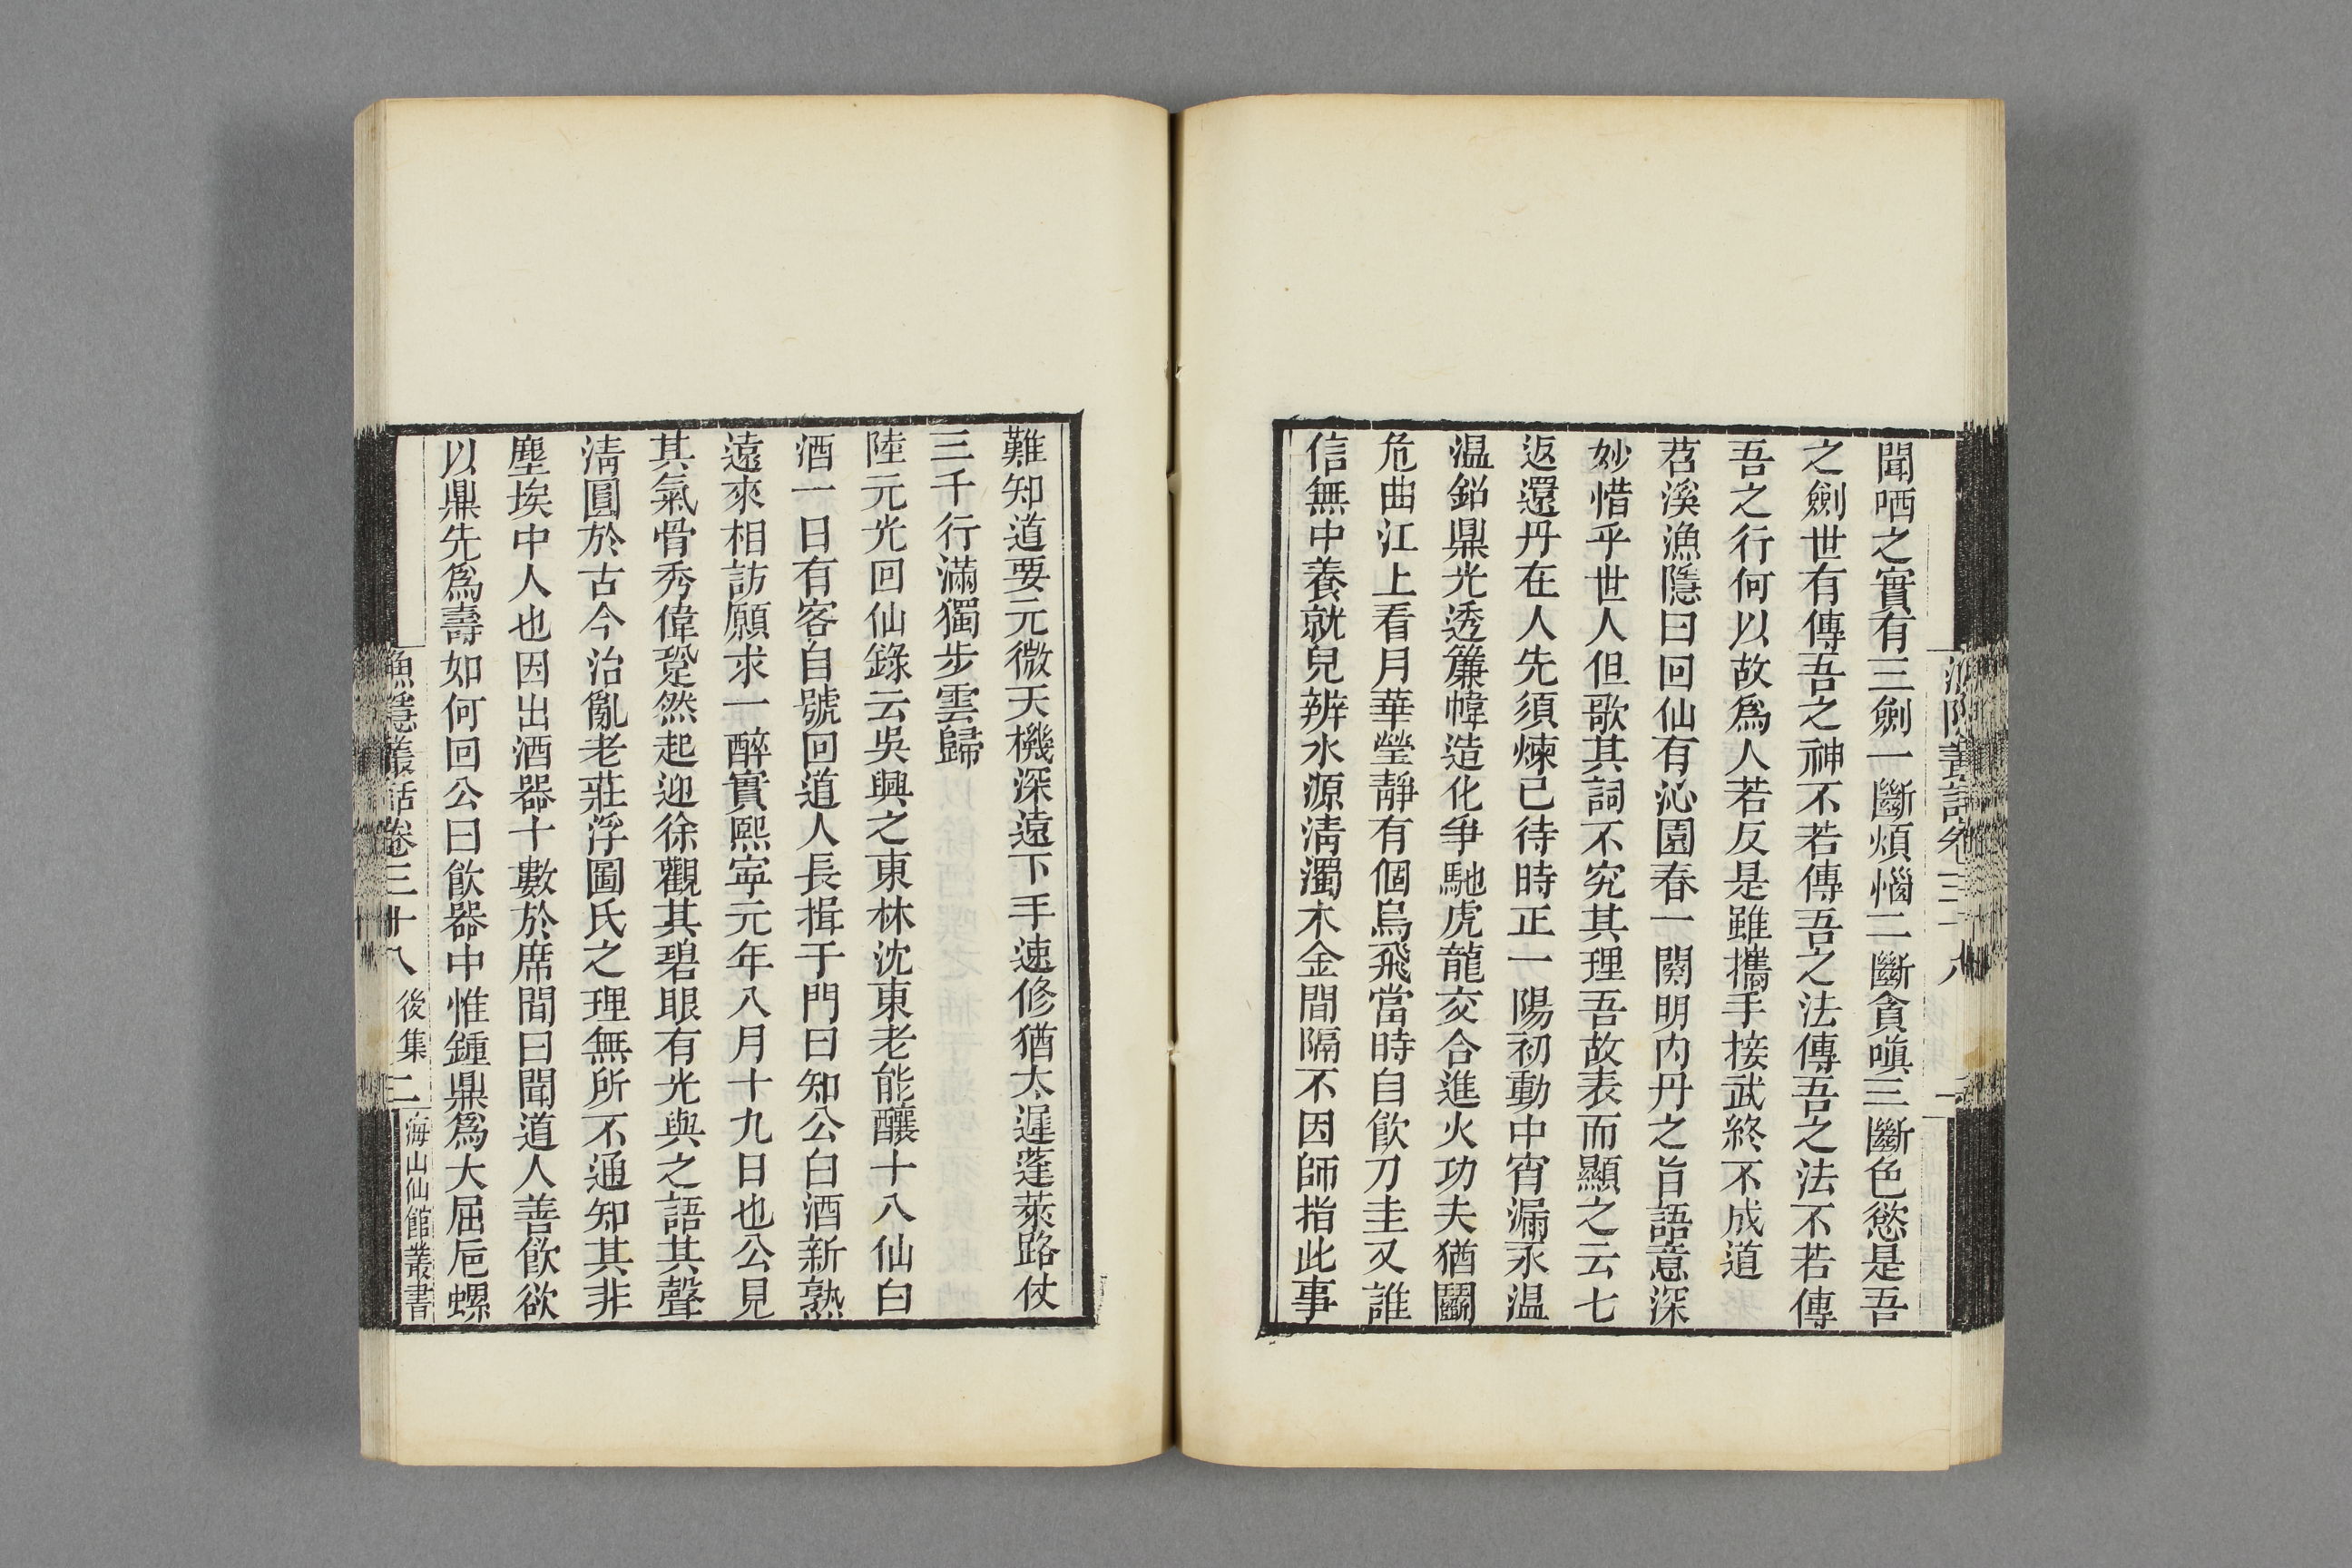 聞哂之實有三劍一斷煩惱二斷貪嗔三斷色慾是吾
之劍世有傳吾之神不若傳吾之法傳吾之法不若傳
吾之行何以故爲人若反是雖攜手接武終不成道
苕溪漁隱曰回仙有沁園春一闋明內丹之旨語意深
妙惜乎世人但歌其詞不究其理吾故表而顯之云七
返還丹在人先須煉己待時正一陽初動中宵漏永温
温鉛鼎光透簾幃造化爭馳虎龍交合進火功夫猶鬭
危曲江上看月華瑩靜有個烏飛當時自飲刀圭又誰
信無中養就兒辨水源淸濁木金間隔不因師指此事
難知道要元微天機深遠下手速修猶太遲蓬萊路仗
三千行滿獨步雲歸
陸元光回仙錄云吳興之東林沈東老能釀十八仙白
酒一日有客自號回道人長揖于門曰知公白酒新熟
遠來相訪願求一醉實熙寧元年八月十九日也公見
其氣骨秀偉跫然起迎徐觀其碧眼有光與之語其聲
淸圓於古今治亂老莊浮圖氏之理無所不通知其非
塵埃中人也因出酒器十數於席間曰聞道人善飮欲
以鼎先爲壽如何回公曰飮器中惟鍾鼎爲大屈卮螺
漁隱叢話卷三十八 後集 二 海山仙館叢書